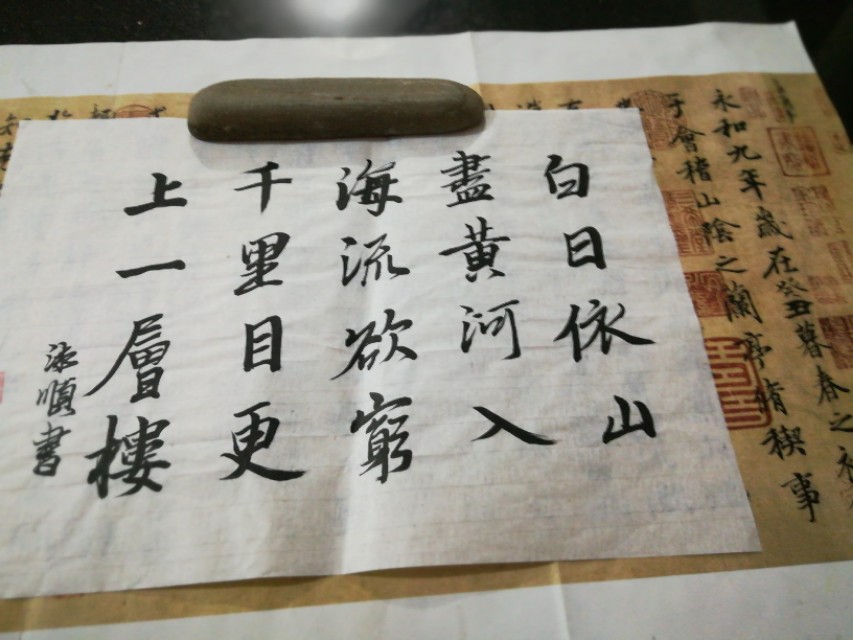 白日依山
盡黃河入
海流欲窮
千里目更
上一層樓
順書
永和九年歲在癸丑暮春之初
于會稽山陰之蘭亭脩稧事